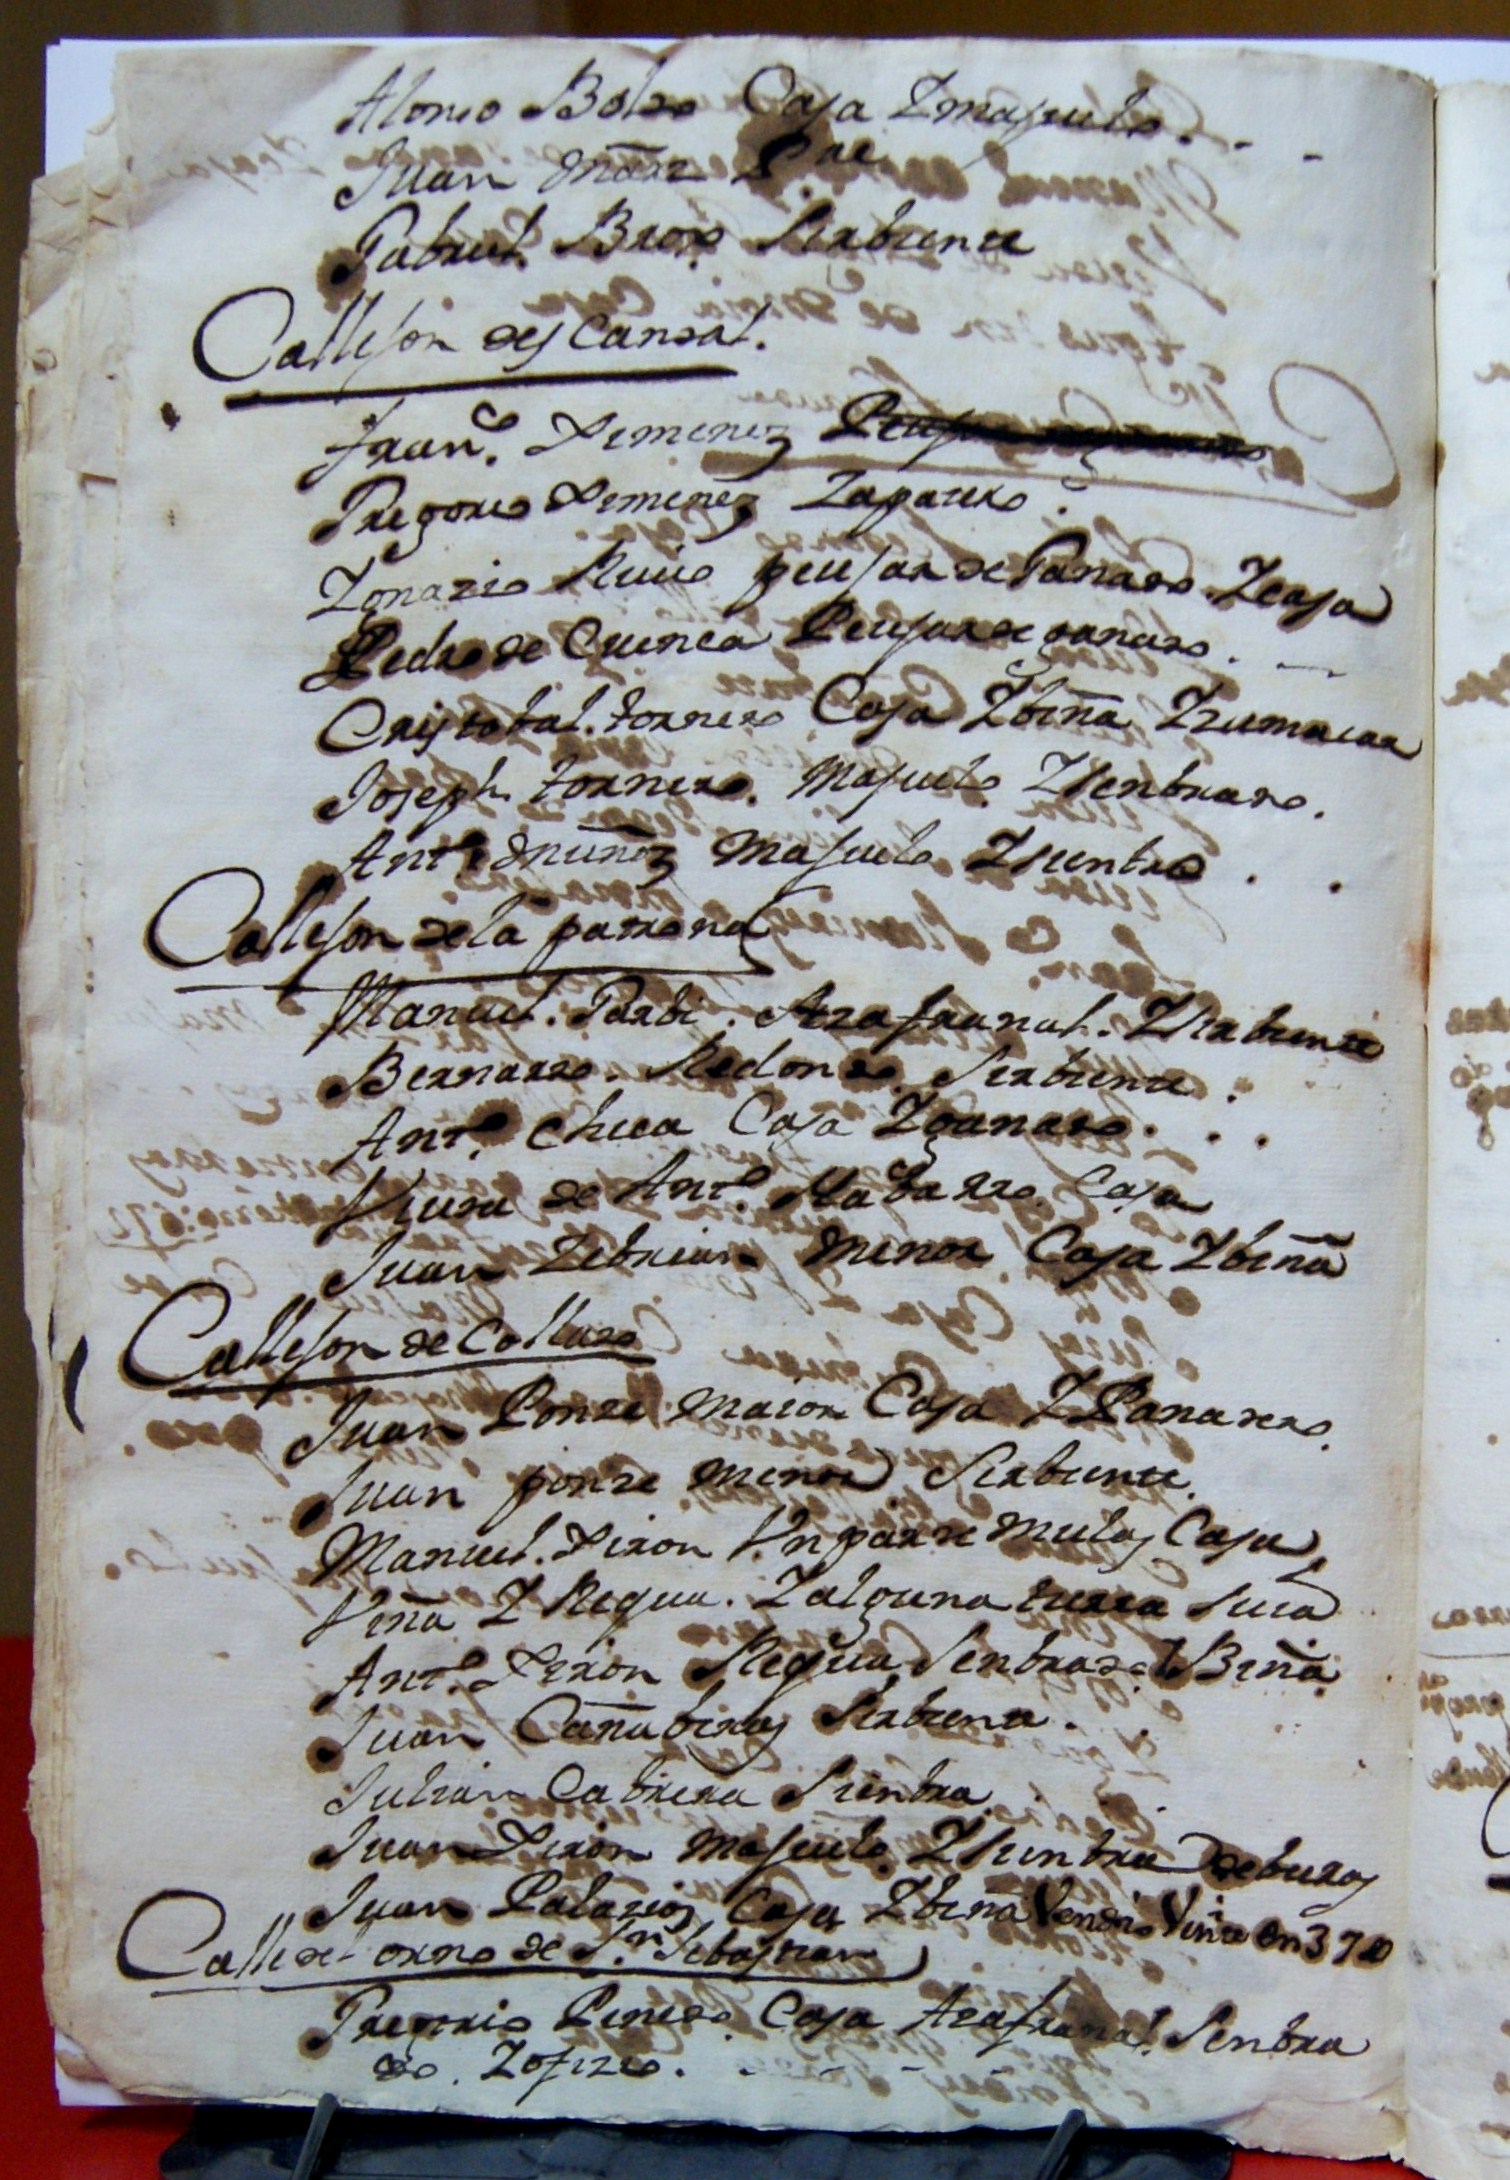 Alonso Bolso Casa Y majuelo
Juan
Gabriel Brox Sirbiente
Callejon des Cansal.
Franco. Ximenez
Gregorio Ximenez Zapatero
Ygnazio Ruiio peujar de Ganado Y casa
Pedro de Cuenca Peujar de ganado
Cristobal tornero Casa Y biña Y
Joseph tornero. Majuelo Y senbrado.
Anto. Muñoz Majuelo Y sienbro
Callejon de la patrona
Manuel Garbi. Azafranal. Y Sirbiente
Bernardo. Redondo Sirbiente
Anto. Chica Casa Y ganado
Viuda de Anto. Nabarro Casa
Juan Zebrian menor Casa Y biña
Callejon de Collado
Juan Ponze maior Casa Y Panadero.
Juan ponze menor Sirbiente.
Manuel Xiron Vn par de Mulas Casa
Viña Y Regua. Y alguna tierra suia
Anto. Xiron Regua Senbrado Y Biña
Juan Cañaberas Sirbiente.
Julian Cabrera Sienbra
Juan Xiron Majuelo Y sienbra de buras
Juan Palazios Casa Y biña Vendio Viña en
Calle del orno de Sn. Sebastian
Gregorio Pinedo Casa Azafranal. Senbra
do. Y ofizio.